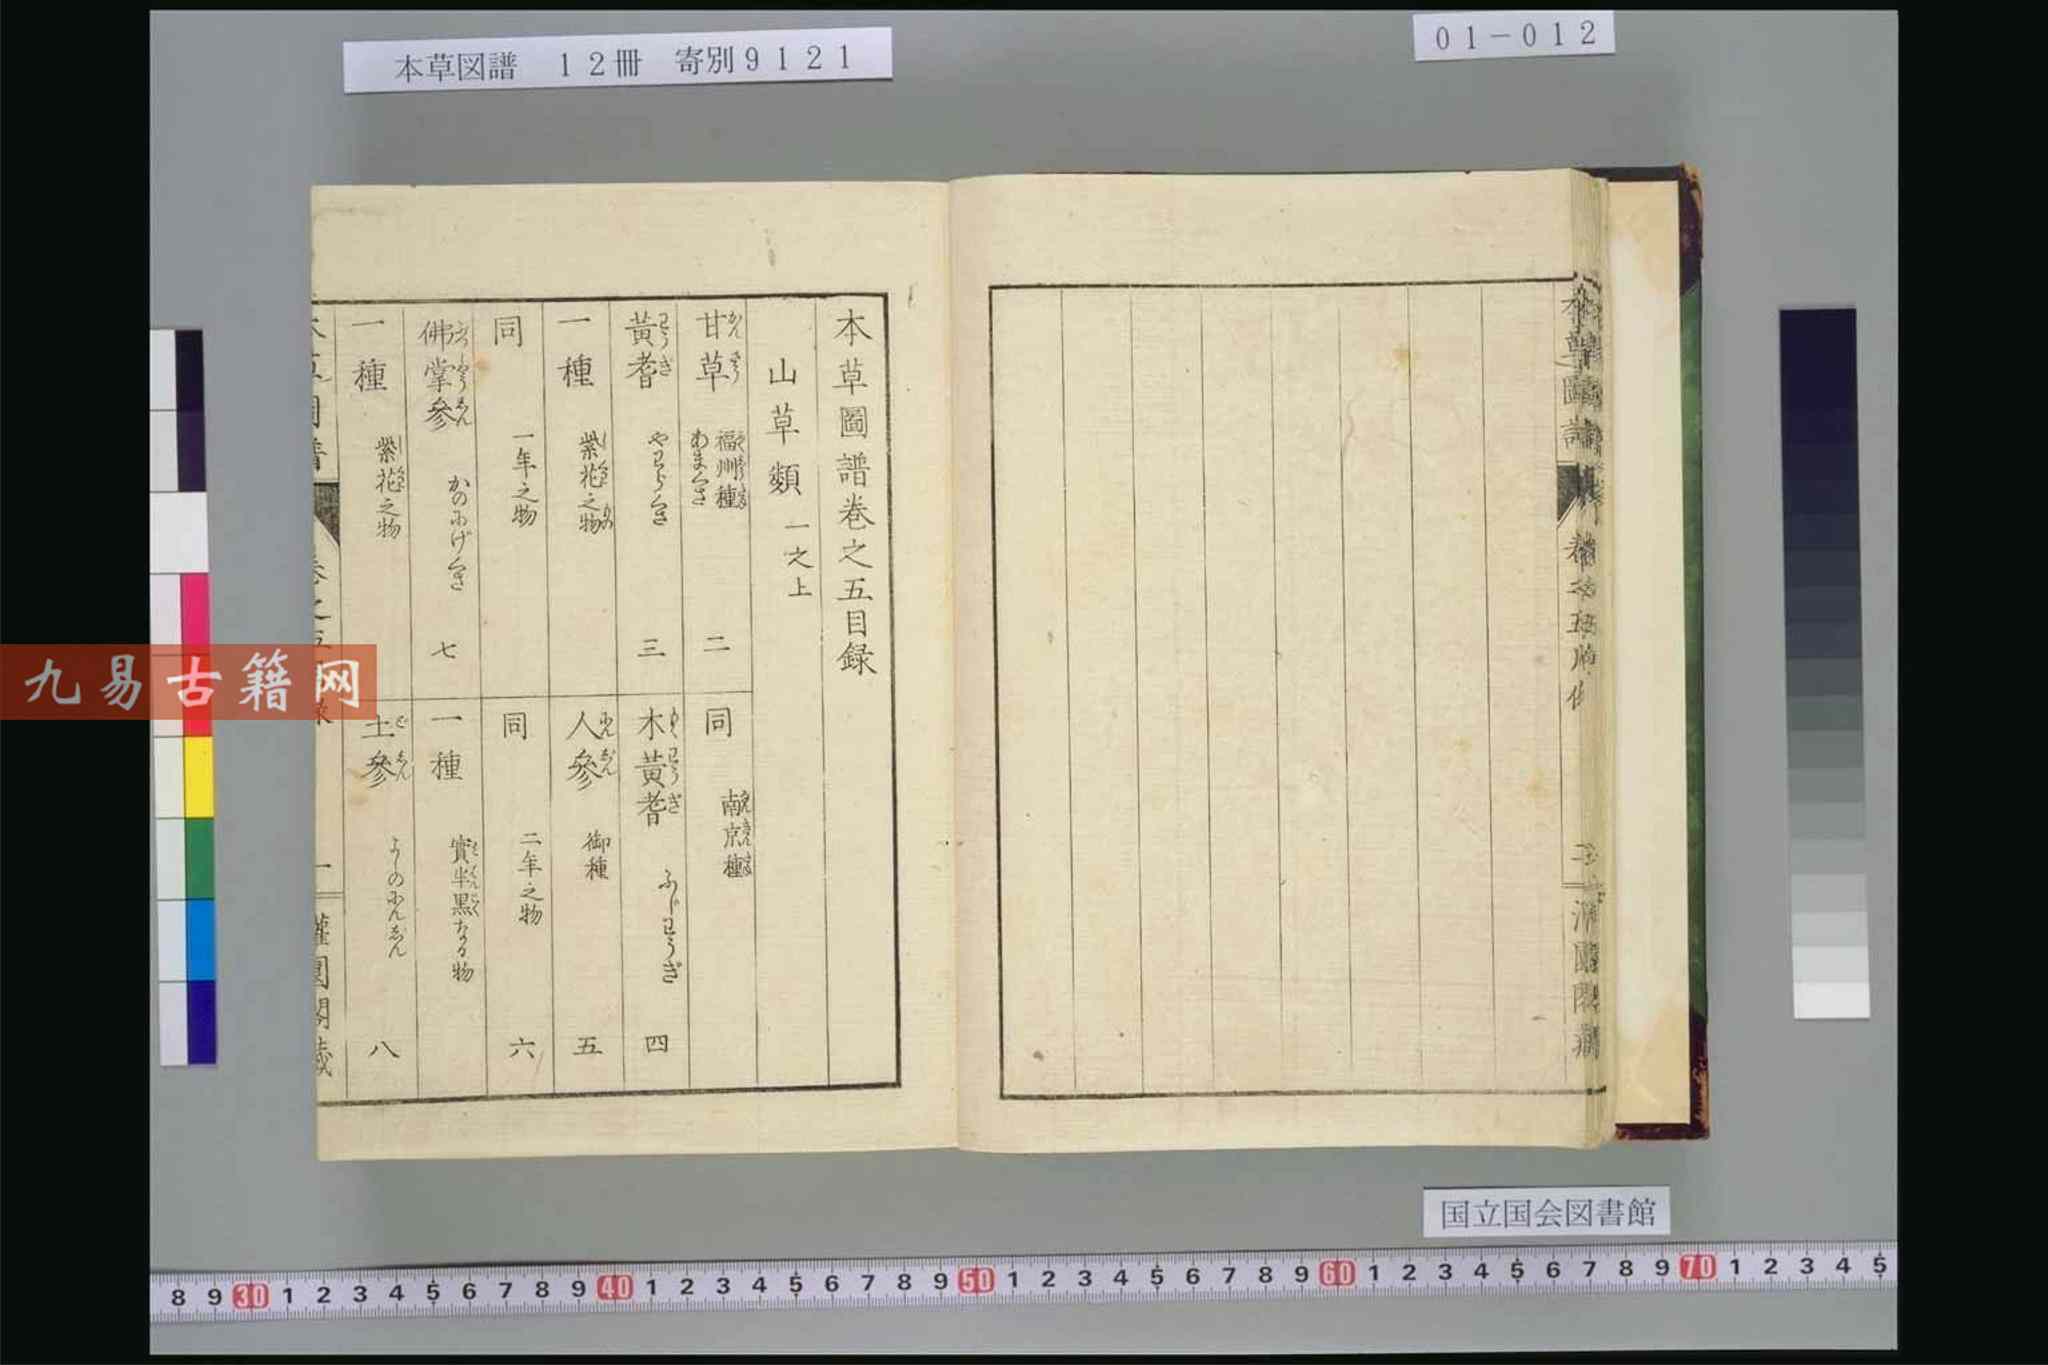 本草図譜　12冊　寄別9121
01-012
本草圖譜巻之五目録
山草類 一之上
甘草 福州種 あまくさ 二
黄耆 やわらくさ 三
一種 紫花之物
同 一年之物
佛掌參 かのにげくさ 七
一種 紫花之物
同 南京種
木黄耆 ふじわうぎ 四
人參 御種 五
同 二年之物 六
一種 實半黒なる物
土參 よしのにんじん 八
九易古籍网
国立国会図書館
8 9 30 1 2 3 4 5 6 7 8 9 40 1 2 3 4 5 6 7 8 9 50 1 2 3 4 5 6 7 8 9 60 1 2 3 4 5 6 7 8 9 70 1 2 3 4 5